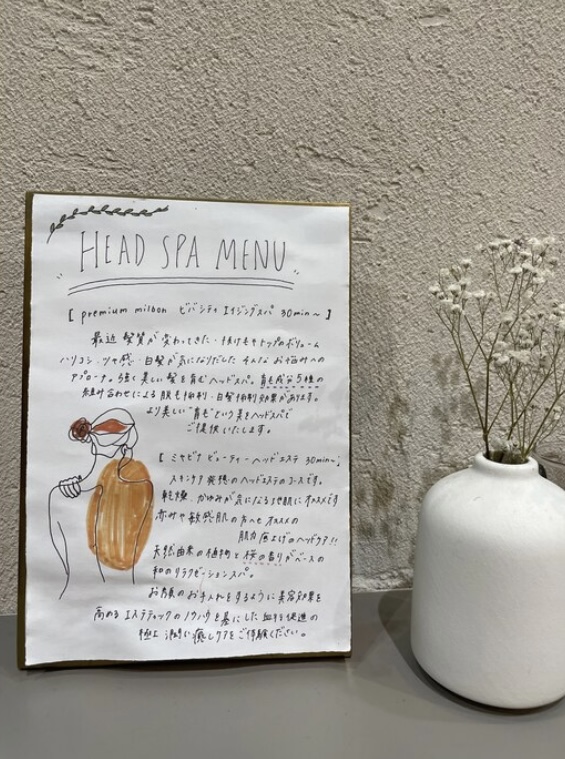 HEAD SPA MENU
[ premium milbon ビバシティ エイジングスパ 30min〜 ]
最近 髪質が変わってきた・抜け毛やトップのボリューム
ハリコシ・ツヤ感・白髪が気になりだした そんなお悩みへの
アプローチ。強く美しい髪を育むヘッドスパ。育毛成分5種の
組み合わせによる脱毛抑制・白髪抑制効果があります。
より美しい"育毛"という美をヘッドスパで
ご提供いたします。
[ ミヤビナ ビューティーヘッドエステ 30min〜 ]
スキンケア発想のヘッドエステのコースです。
乾燥、かゆみが気になる頭肌にオススメです
赤みや敏感肌の方へもオススメの
肌力底上げのヘッドケア!!
天然由来の植物と桜の香りがベースの
和のリラクゼーションスパ。
お顔のお手入れをするように美容効果を
高めるエステティックのノウハウを基にした血行促進の
極上 癒しケアをご体験ください。